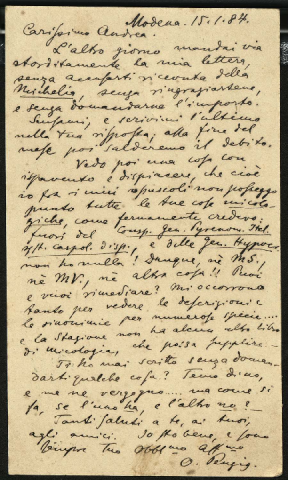 Modena. 15.1.84.
Carissimo Andrea.
L'altro giorno mandai via
storditamente la mia lettera,
senza accusarti ricevuta della
Michelia, senza ringraziarti,
e senza domandarne l'importo.
Scusami, e scrivimi l'ultimo
nella tua risposta; alla fine del
mese poi salderemo il debito.
Vedo poi una cosa con
ispavento e dispiacere, che cioè
io fra i miei opuscoli non posseggo
punto tutte le tue cose micolo-
giche, come fermamente credevo:
fuori del Consp. Gen. Pyrenom. Ital.
Syst. carpol. disp., e delle Gen. Hypocr.
non ho nulla! Dunque, nè M.S.,
nè M.V., nè altra cosa!! Puoi
e vuoi rimediare? Mi occorrono
tanto per vedere le descrizioni e
le sinonimie per numerose specie....
e la Stazione non ha alcun altro libro
di micologia, che possa supplire.
Ti ho mai scritto senza doman-
darti qualche cosa? Temo di no,
e me ne vergogno.... ma come si
fa, se l'uno ha, e l'altro no?
Tanti saluti a te, ai tuoi,
agli amici. Io sto bene, e sono
sempre tuo obblmo affmo
O. Penzig.